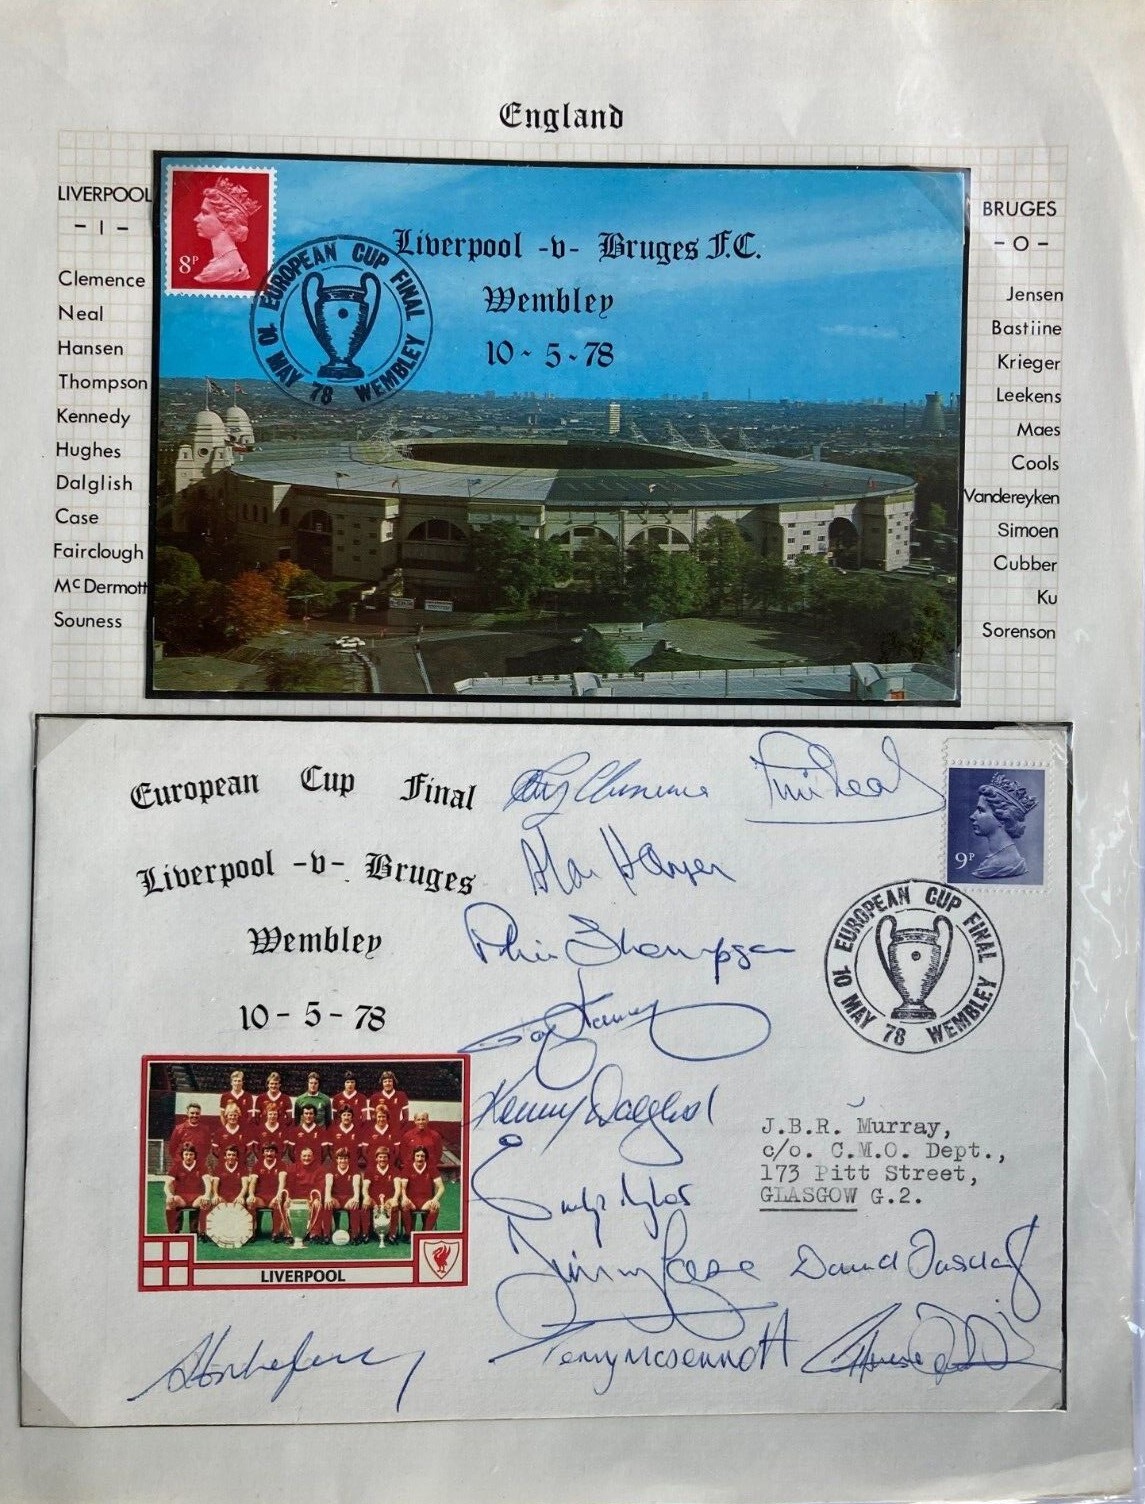 England
LIVERPOOL
- 1 -
Clemence
Neal
Hansen
Thompson
Kennedy
Hughes
Dalglish
Case
Fairclough
McDermott
Souness
8P
EUROPEAN CUP FINAL
10 MAY 78 WEMBLEY
Liverpool -v- Bruges F.C.
Wembley
10-5-78
BRUGES
- O -
Jensen
Bastiine
Krieger
Leekens
Maes
Cools
Vandereyken
Simoen
Cubber
Ku
Sorenson
European Cup Final
Liverpool -v- Bruges
Wembley
10-5-78
LIVERPOOL
Ray Clemence
Phil Neal
Alan Hansen
Phil Thompson
Kenny Dalglish
Jimmy Case
David
Terry McDermott
9P
EUROPEAN CUP FINAL
10 MAY 78 WEMBLEY
J.B.R. Murray,
c/o. C.M.O. Dept.,
173 Pitt Street,
GLASGOW G.2.